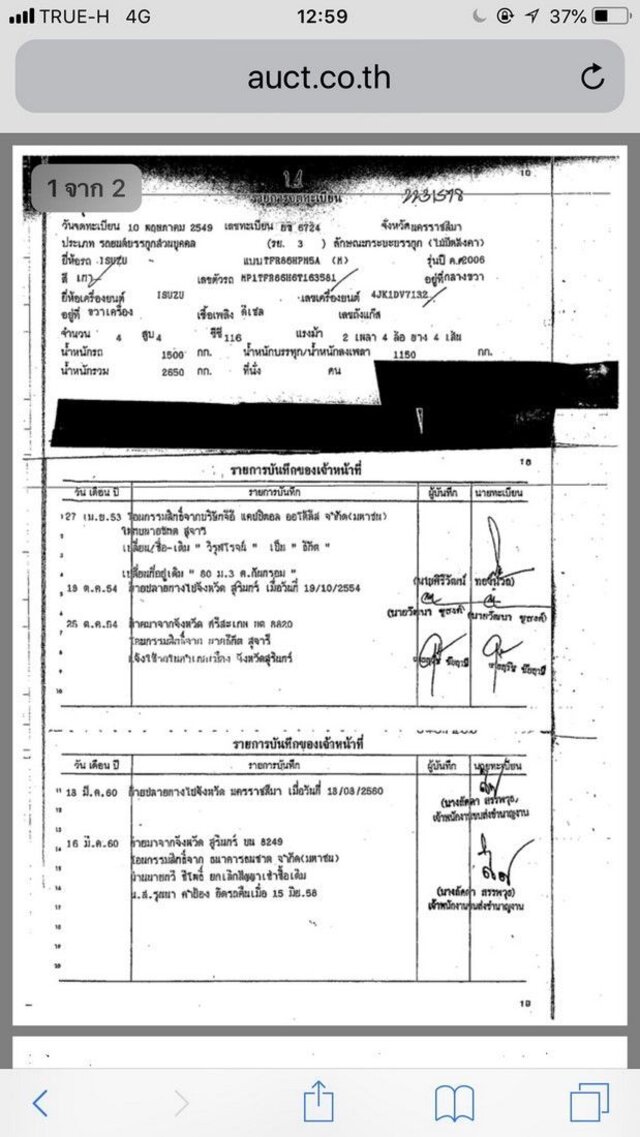 TRUE-H 4G 12:59 37%
auct.co.th
1 จาก 2
18
รายการจดทะเบียน
วันจดทะเบียน 10 พฤษภาคม 2549 เลขทะเบียน 6724 จังหวัดนครราชสีมา
ประเภท รถยนต์บรรทุกส่วนบุคคล (รย. 3 ) ลักษณะกระบะบรรทุก (ไม่มีหลังคา)
ยี่ห้อรถ ISUZU แบบTFR86HPM5A (M) รุ่นปี ค.ศ2006
สี เทา เลขตัวรถ MP1TFR86H6T163581 อยู่ที่กลางขวา
ยี่ห้อเครื่องยนต์ ISUZU เลขเครื่องยนต์ 4JK1DV7132
อยู่ที่ ขวาเครื่อง เชื้อเพลิง ดีเซล เลขถังแก๊ส
จำนวน 4 สูบ 4 ซีซี 116 แรงม้า 2 เพลา 4 ล้อ ยาง 4 เส้น
น้ำหนักรถ 1500 กก. น้ำหนักบรรทุก/น้ำหนักลงเพลา 1150 กก.
น้ำหนักรวม 2650 กก. ที่นั่ง คน
18
รายการบันทึกของเจ้าหน้าที่
วัน เดือน ปี รายการบันทึก ผู้บันทึก นายทะเบียน
27 เม.ย.53 โอนกรรมสิทธิ์จากบริษัทจีอี แคปปิตอล ออโต้ลีส จำกัด(มหาชน)
เปลี่ยนชื่อ-เดิม " วิรุฬโรจน์ " เป็น " ธิกิต "
เปลี่ยนที่อยู่เดิม " 80 ม.3
19 ต.ค.54 ย้ายปลายทางไปจังหวัด สุรินทร์ เมื่อวันที่ 19/10/2554
(นายวัฒนา ชูสงค์) (นายวัฒนา ชูสงค์)
25 ต.ค.54 ย้ายมาจากจังหวัด ศรีสะเกษ 8820
โอนกรรมสิทธิ์จาก สุจารี
จังหวัดสุรินทร์
รายการบันทึกของเจ้าหน้าที่
วัน เดือน ปี รายการบันทึก ผู้บันทึก นายทะเบียน
13 มี.ค.60 ย้ายปลายทางไปจังหวัด นครราชสีมา เมื่อวันที่ 13/03/2560
(นางลัดดา สรรพวุธ)
เจ้าพนักงานขนส่งชำนาญงาน
16 มี.ค.60 ย้ายมาจากจังหวัด สุรินทร์ บน 8249
โอนกรรมสิทธิ์จาก ธนาคารธนชาต จำกัด(มหาชน)
ผ่านนายทวี ชีโพธิ์ ยกเลิกสัญญาเช่าซื้อเดิม
น.ส.รุณนา คำป้อง ยึดรถคืนเมื่อ 15 มิย.58
(นางลัดดา สรรพวุธ)
เจ้าพนักงานขนส่งชำนาญงาน
19